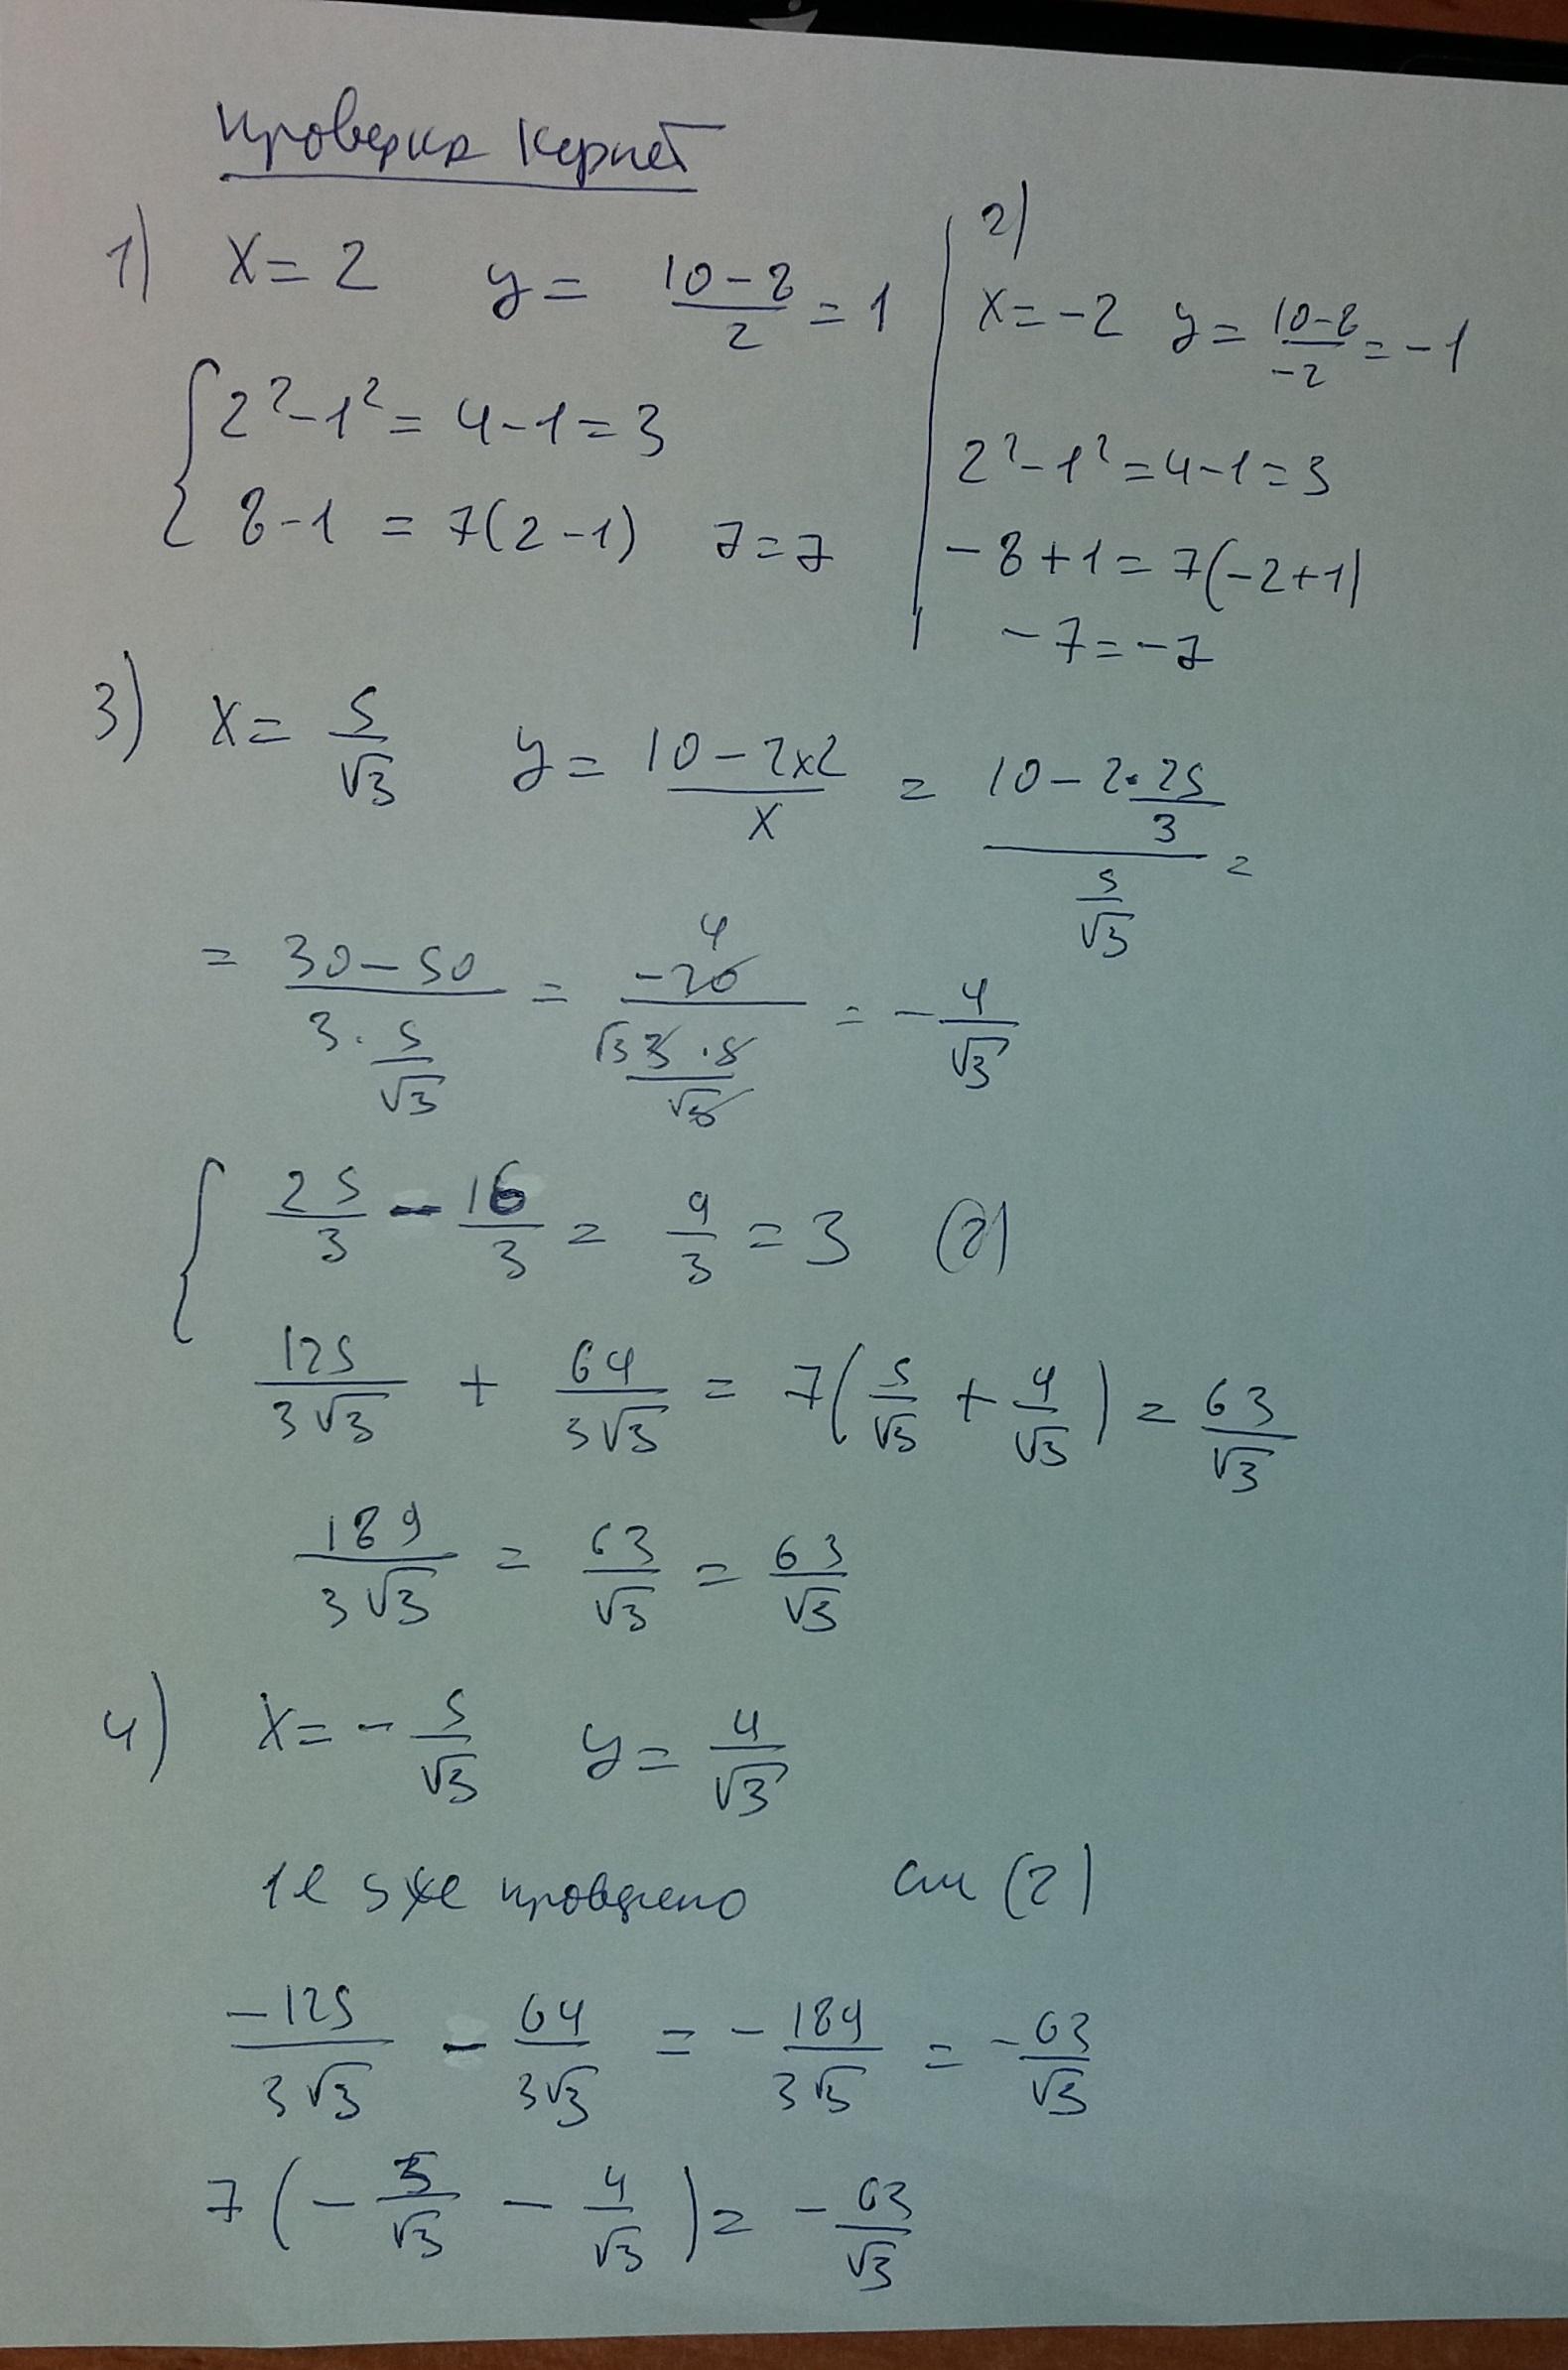 Проверка корней
1) x = 2 y = (10-8)/2 = 1
{ 2² - 1² = 4 - 1 = 3
8 - 1 = 7(2 - 1) 7 = 7
2)
x = -2 y = (10-8)/(-2) = -1
2² - 1² = 4 - 1 = 3
-8 + 1 = 7(-2 + 1)
-7 = -7
3) x = 5/√3 y = (10 - 2x2)/x = (10 - 2·25/3)/(5/√3) =
= (30 - 50)/(3·5/√3) = -20/(3·5/√3) = -4/√3
{ 25/3 - 16/3 = 9/3 = 3 (2)
125/(3√3) + 64/(3√3) = 7(5/√3 + 4/√3) = 63/√3
189/(3√3) = 63/√3 = 63/√3
4) x = -5/√3 y = 4/√3
1е уже проверено см (2)
-125/(3√3) - 64/(3√3) = -189/(3√3) = -63/√3
7(-5/√3 - 4/√3) = -63/√3